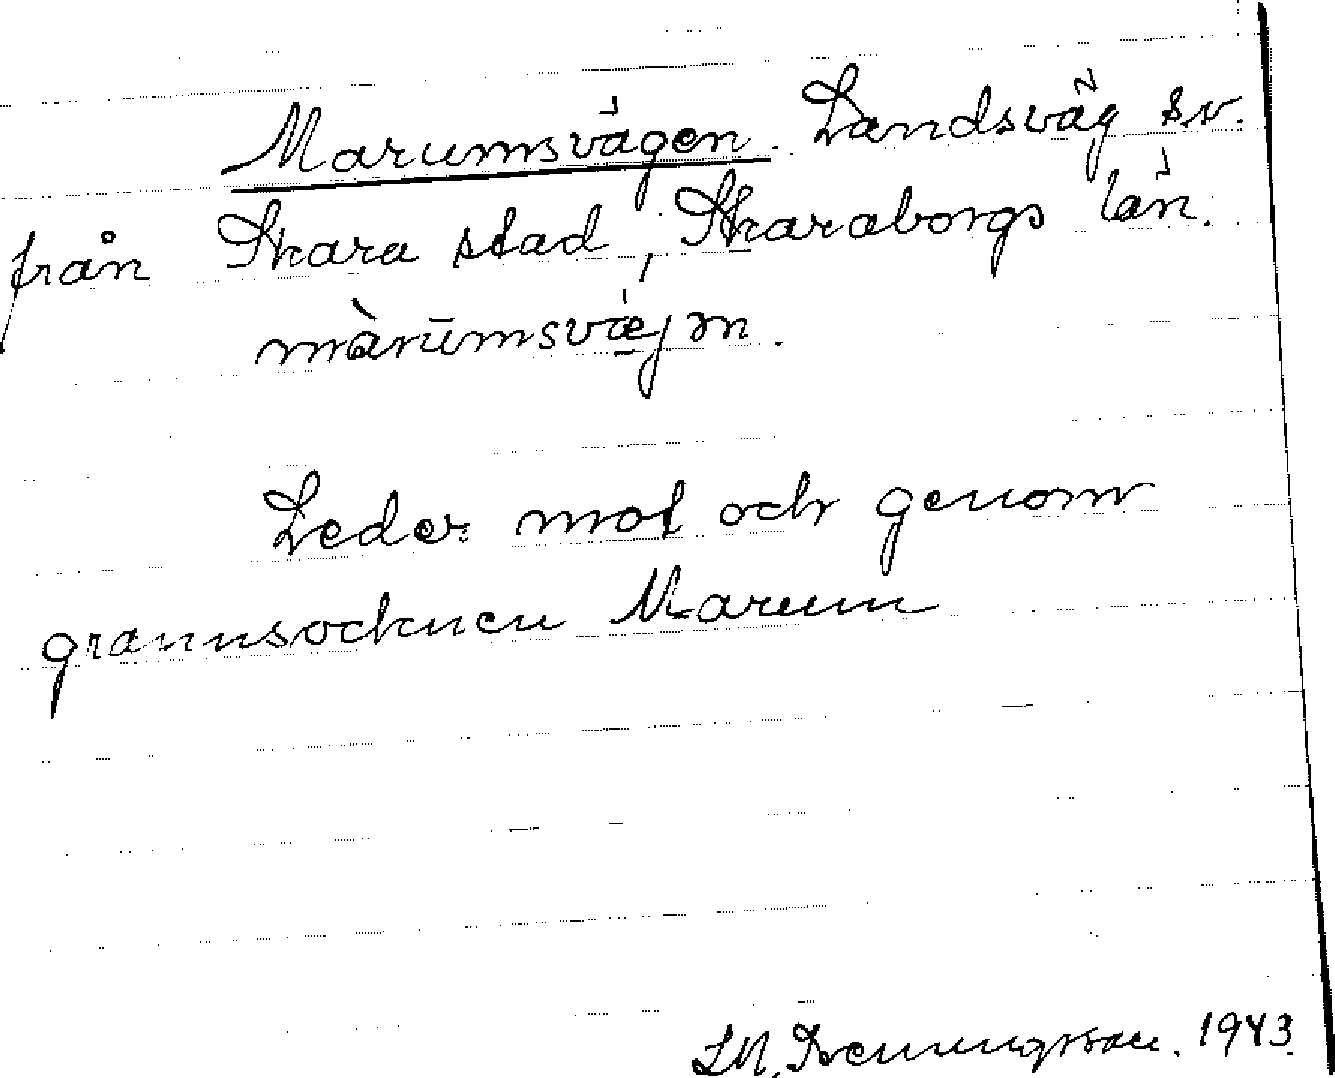 Marumsvägen. Landsväg sv.
från Skara stad, Skaraborgs län.
màrūmsvæ̀jən.
Leder mot och genom
grannsocknen Marum
1943.